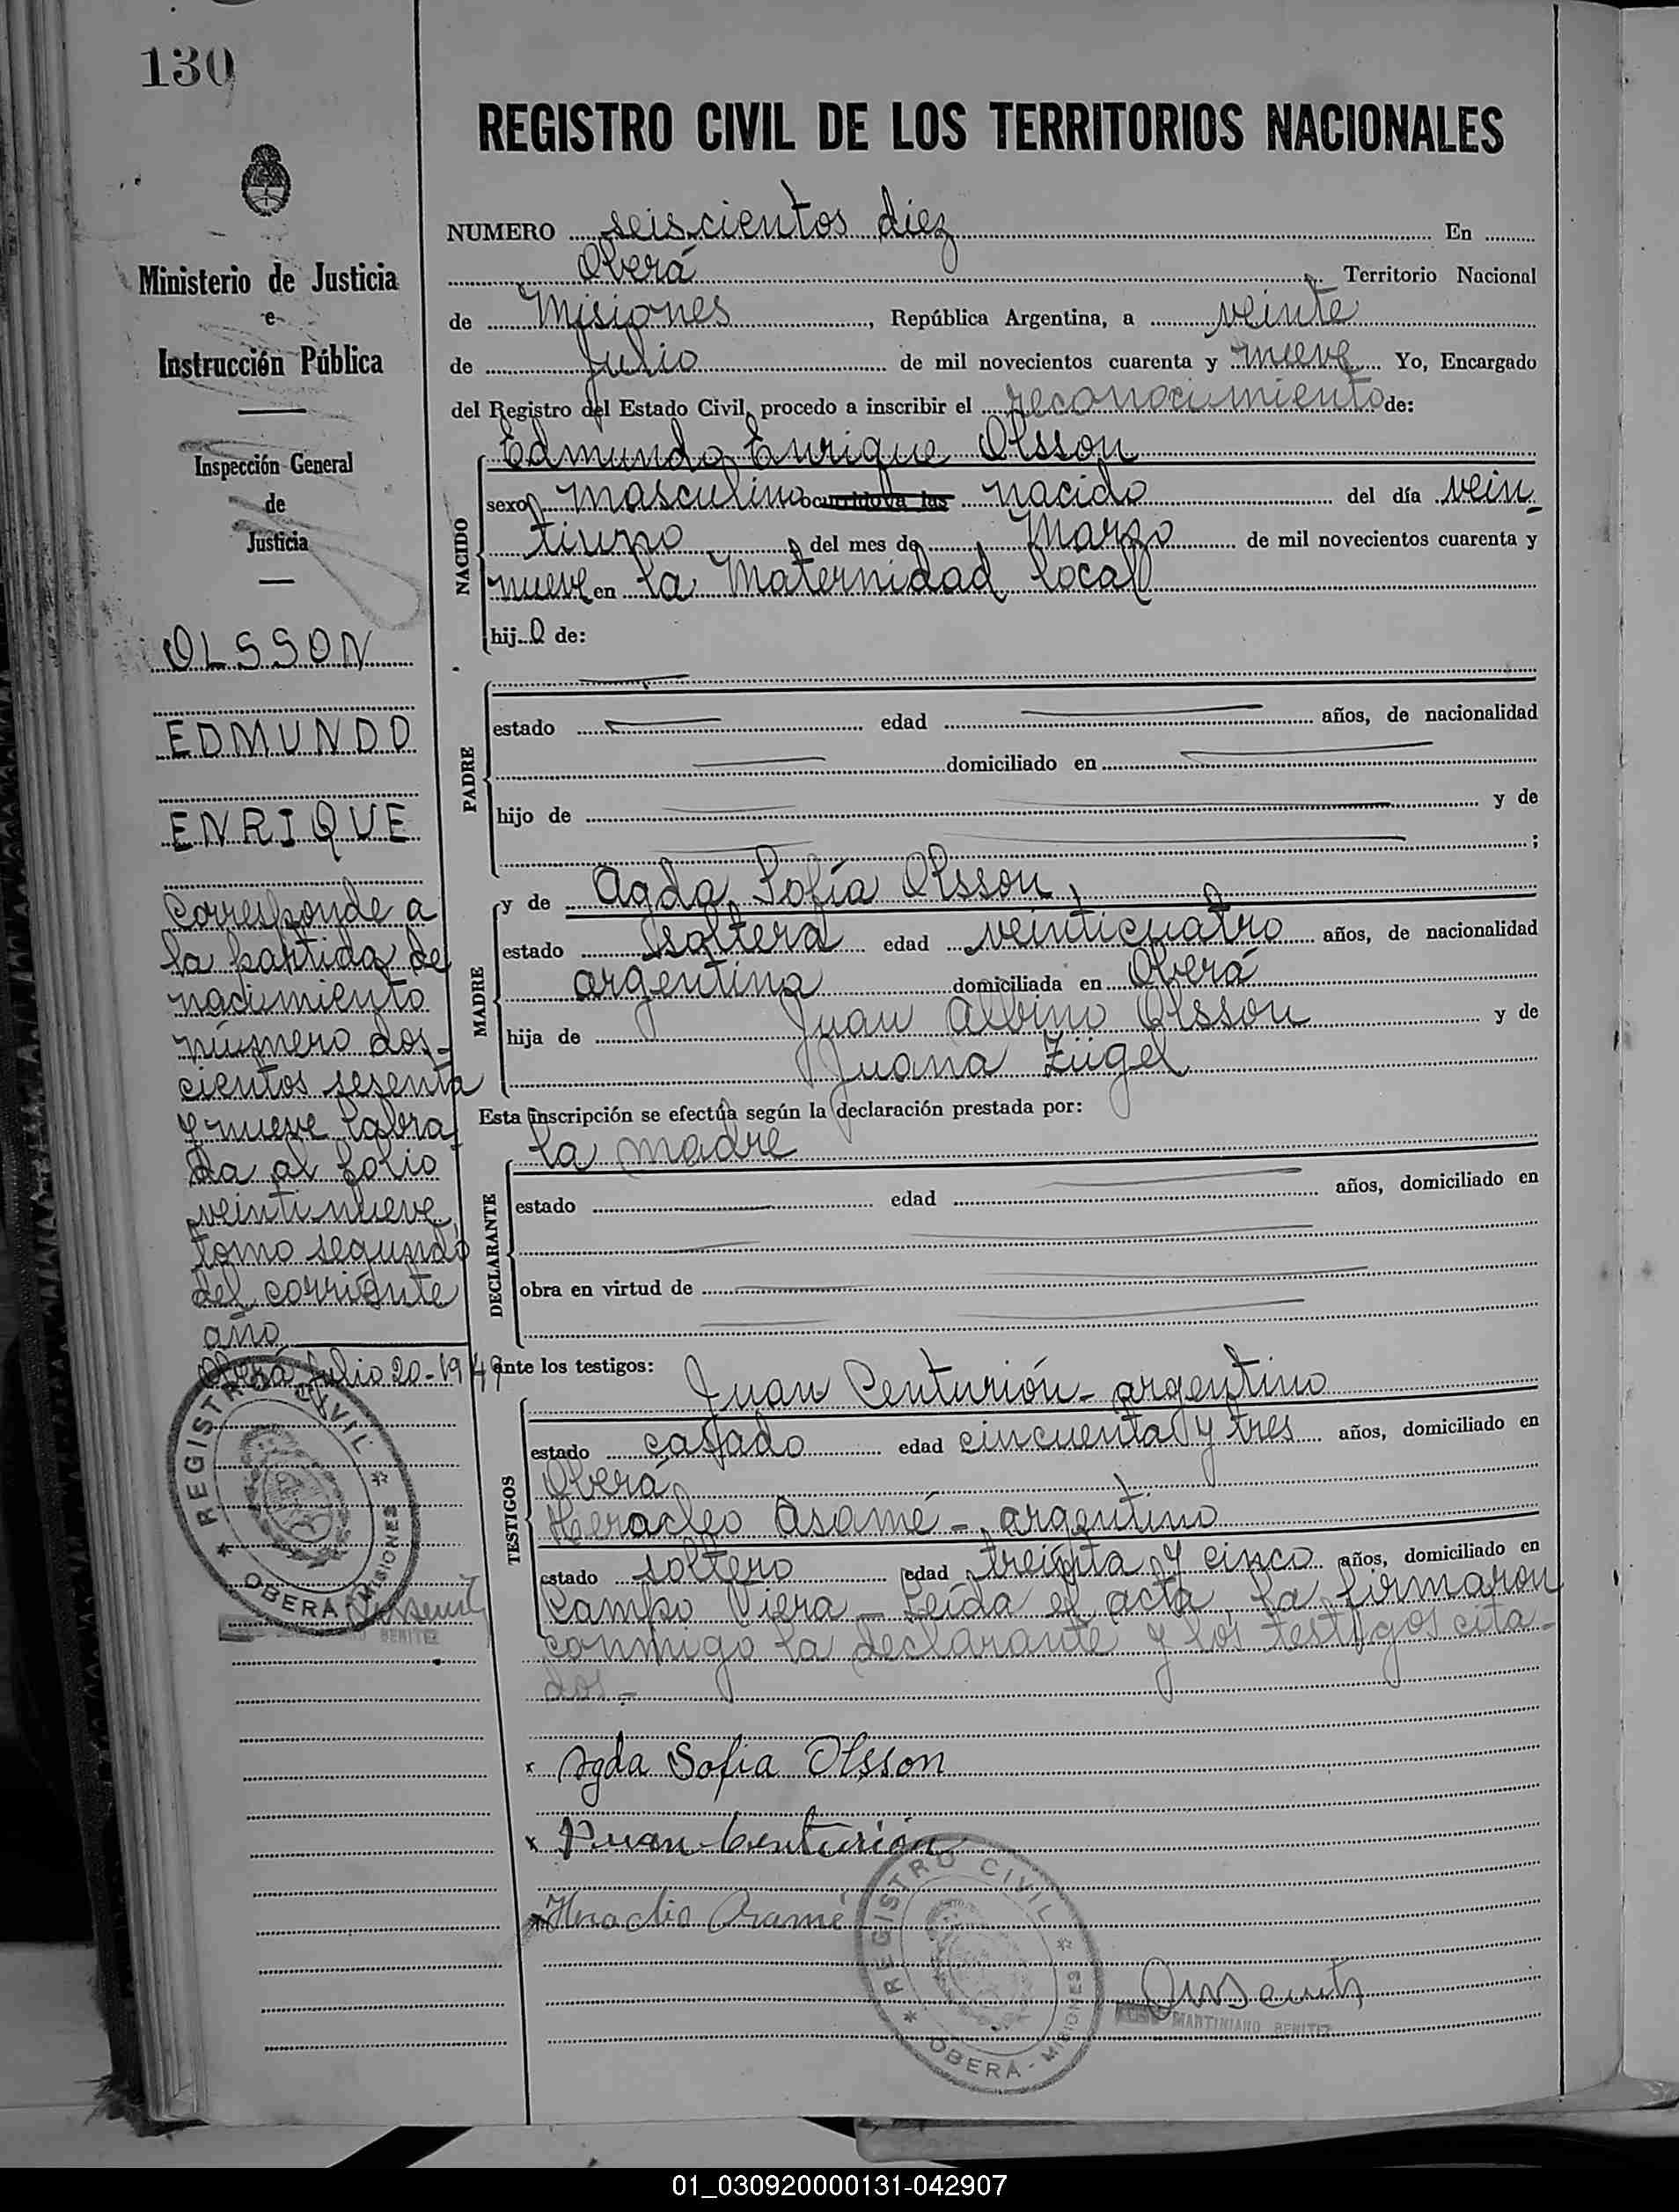 130
REGISTRO CIVIL DE LOS TERRITORIOS NACIONALES
Ministerio de Justicia
e
Instrucción Pública
Inspección General
de
Justicia
OLSSON
EDMUNDO
ENRIQUE
Corresponde a
la partida de
nacimiento
número dos-
cientos sesenta
y nueve labra
da al folio
veintinueve
tomo segundo
del corriente
año
Oberá Julio 20-1949
REGISTRO CIVIL
OBERÁ - MISIONES
BENITEZ
NUMERO seiscientos diez En
Oberá Territorio Nacional
de Misiones, República Argentina, a veinte
de Julio de mil novecientos cuarenta y nueve Yo, Encargado
del Registro del Estado Civil, procedo a inscribir el reconocimiento de:
NACIDO
Edmundo Enrique Olsson
sexo masculino ocurrido a las nacido del día vein
tiuno del mes de Marzo de mil novecientos cuarenta y
nueve en la Maternidad local
hijo de:
PADRE
estado edad años, de nacionalidad
domiciliado en
hijo de y de
;
MADRE
y de Agda Sofía Olsson
estado soltera edad veinticuatro años, de nacionalidad
argentina domiciliada en Oberá
hija de Juan Albino Olsson y de
Juana Zügel
Esta inscripción se efectúa según la declaración prestada por:
DECLARANTE
la madre
estado edad años, domiciliado en
obra en virtud de
ante los testigos:
TESTIGOS
Juan Centurión - argentino
estado casado edad cincuenta y tres años, domiciliado en
Oberá
Heracleo Asamé - argentino
estado soltero edad treinta y cinco años, domiciliado en
Campo Viera - Leída el acta, la firmaron
conmigo la declarante y los testigos cita-
dos.-
x Agda Sofia Olsson
x Juan Centurión
x Heraclio Asamé
REGISTRO CIVIL
OBERÁ - MISIONES
MARTINIANO BENITEZ
01_030920000131-042907